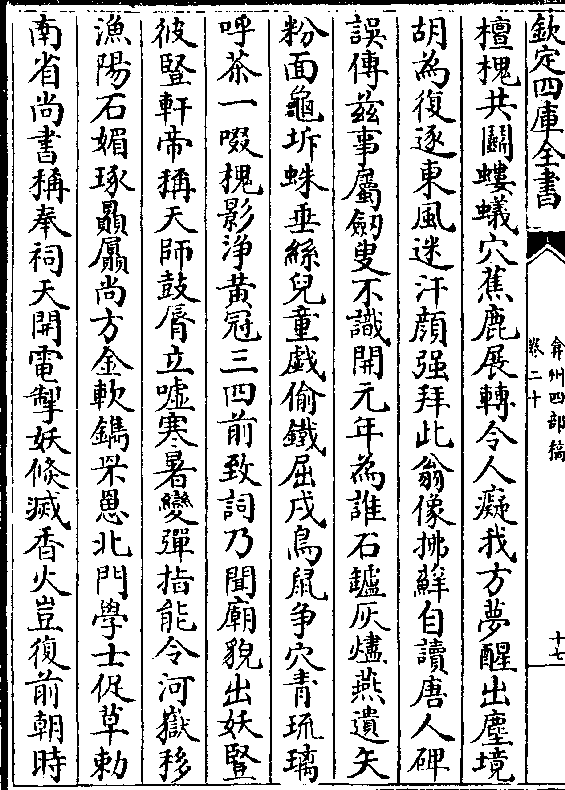 欽定四庫全書
弇州四部稿
卷二十
十七
檀槐共鬬螻蟻穴蕉鹿展轉令人癡我方夢醒出塵境
胡為復逐東風迷汗顏强拜此翁像拂蘚自讀唐人碑
誤傳兹事屬劒叟不識開元年為誰石鑪灰燼燕遺矢
粉面龜坼蛛垂絲兒童戲偷鐵屈戌鳥鼠争穴青琉璃
呼茶一啜槐影淨黄冠三四前致詞乃聞廟貌出妖豎
彼豎軒帝稱天師鼓脣立噓寒暑變彈指能令河嶽移
漁陽石媚琢贔屭尚方金軟鐫罘罳北門學士促草勅
南省尚書稱奉祠天開電掣妖倐滅香火豈復前朝時